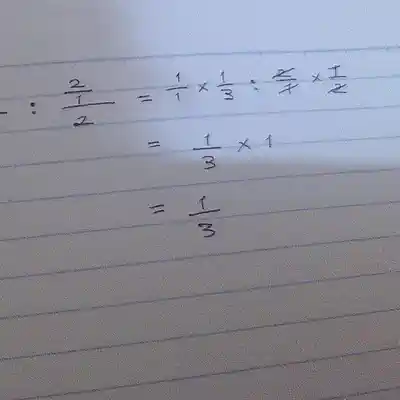 - : 2/1/2 = 1/1 × 1/3 : 2/1 × 1/2
= 1/3 × 1
= 1/3